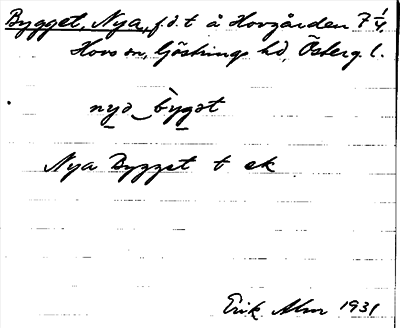 Bygget, Nya, f.d. t å Hovgården 7 1/4,
Hovs sn, Göstrings hd, Österg. l.
nyə bygət
Nya Bygget t ek
Erik Alm 1931